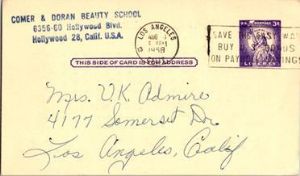 COMER & DORAN BEAUTY SCHOOL
6356-60 Hollywood Blvd.
Hollywood 28, Calif. U.S.A.
LOS ANGELES
1958
SAVE THE EASY WAY
BUY BONDS
ON PAYROLL SAVINGS
3¢
LIBERTY
THIS SIDE OF CARD IS FOR ADDRESS
Mrs. V.K Admire
4177 Somerset Dr.
Los Angeles, Calif